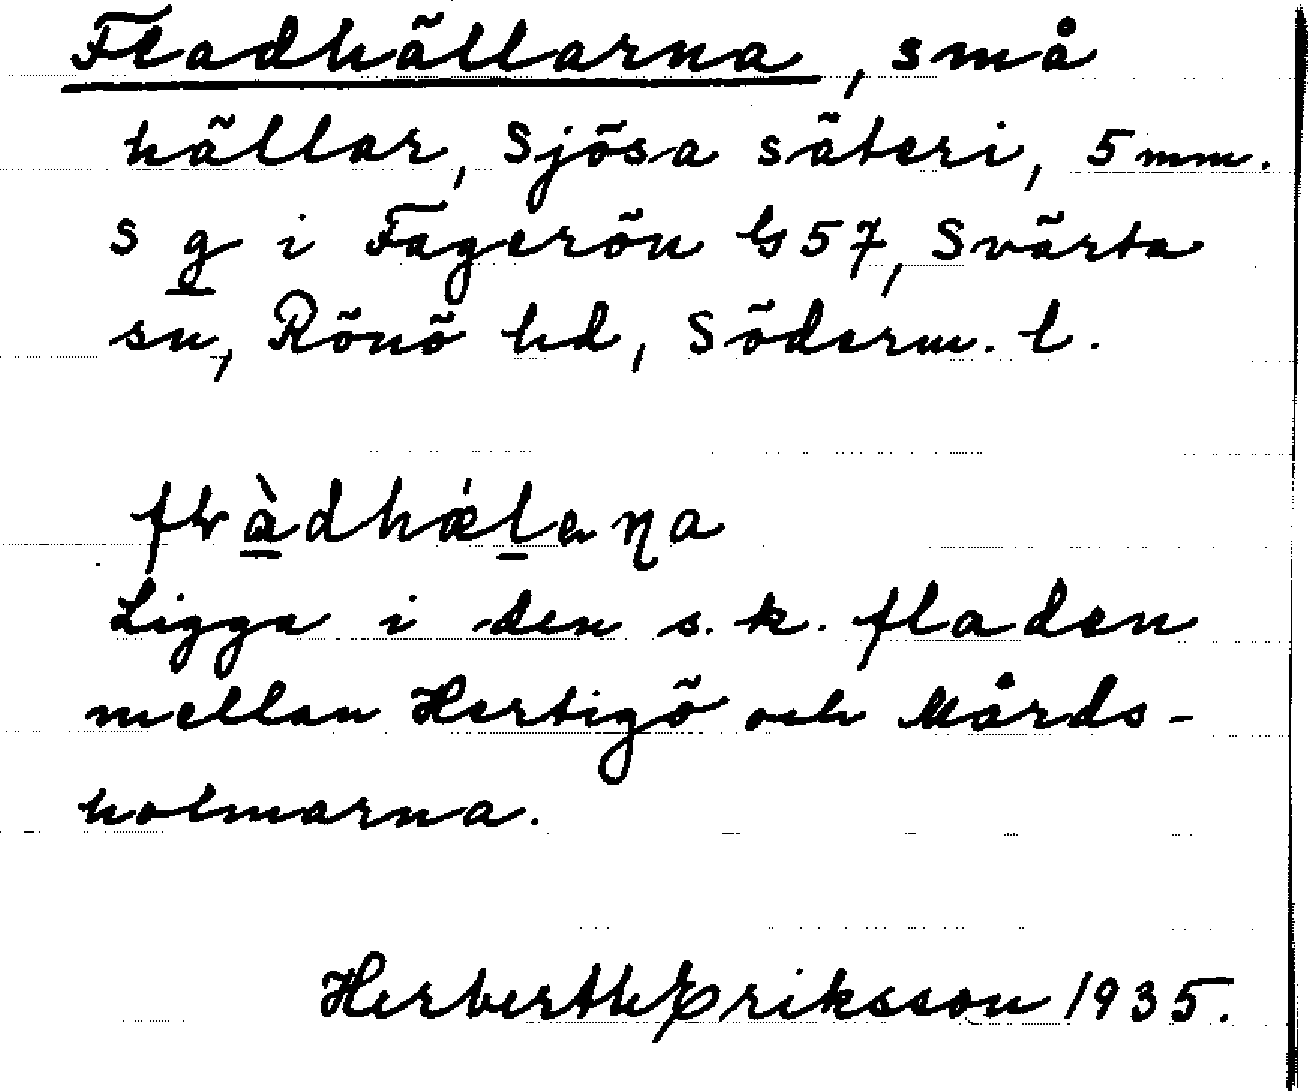 Fladhällarna, små
hällar, Sjösa säteri, 5 mm.
s g i Fagerön G 57, Svärta
sn, Rönö hd, Söderm. l.
Ligga i den s.k. fladen
mellan Hertigö och Mårds-
holmarna.
Herberth Eriksson 1935.